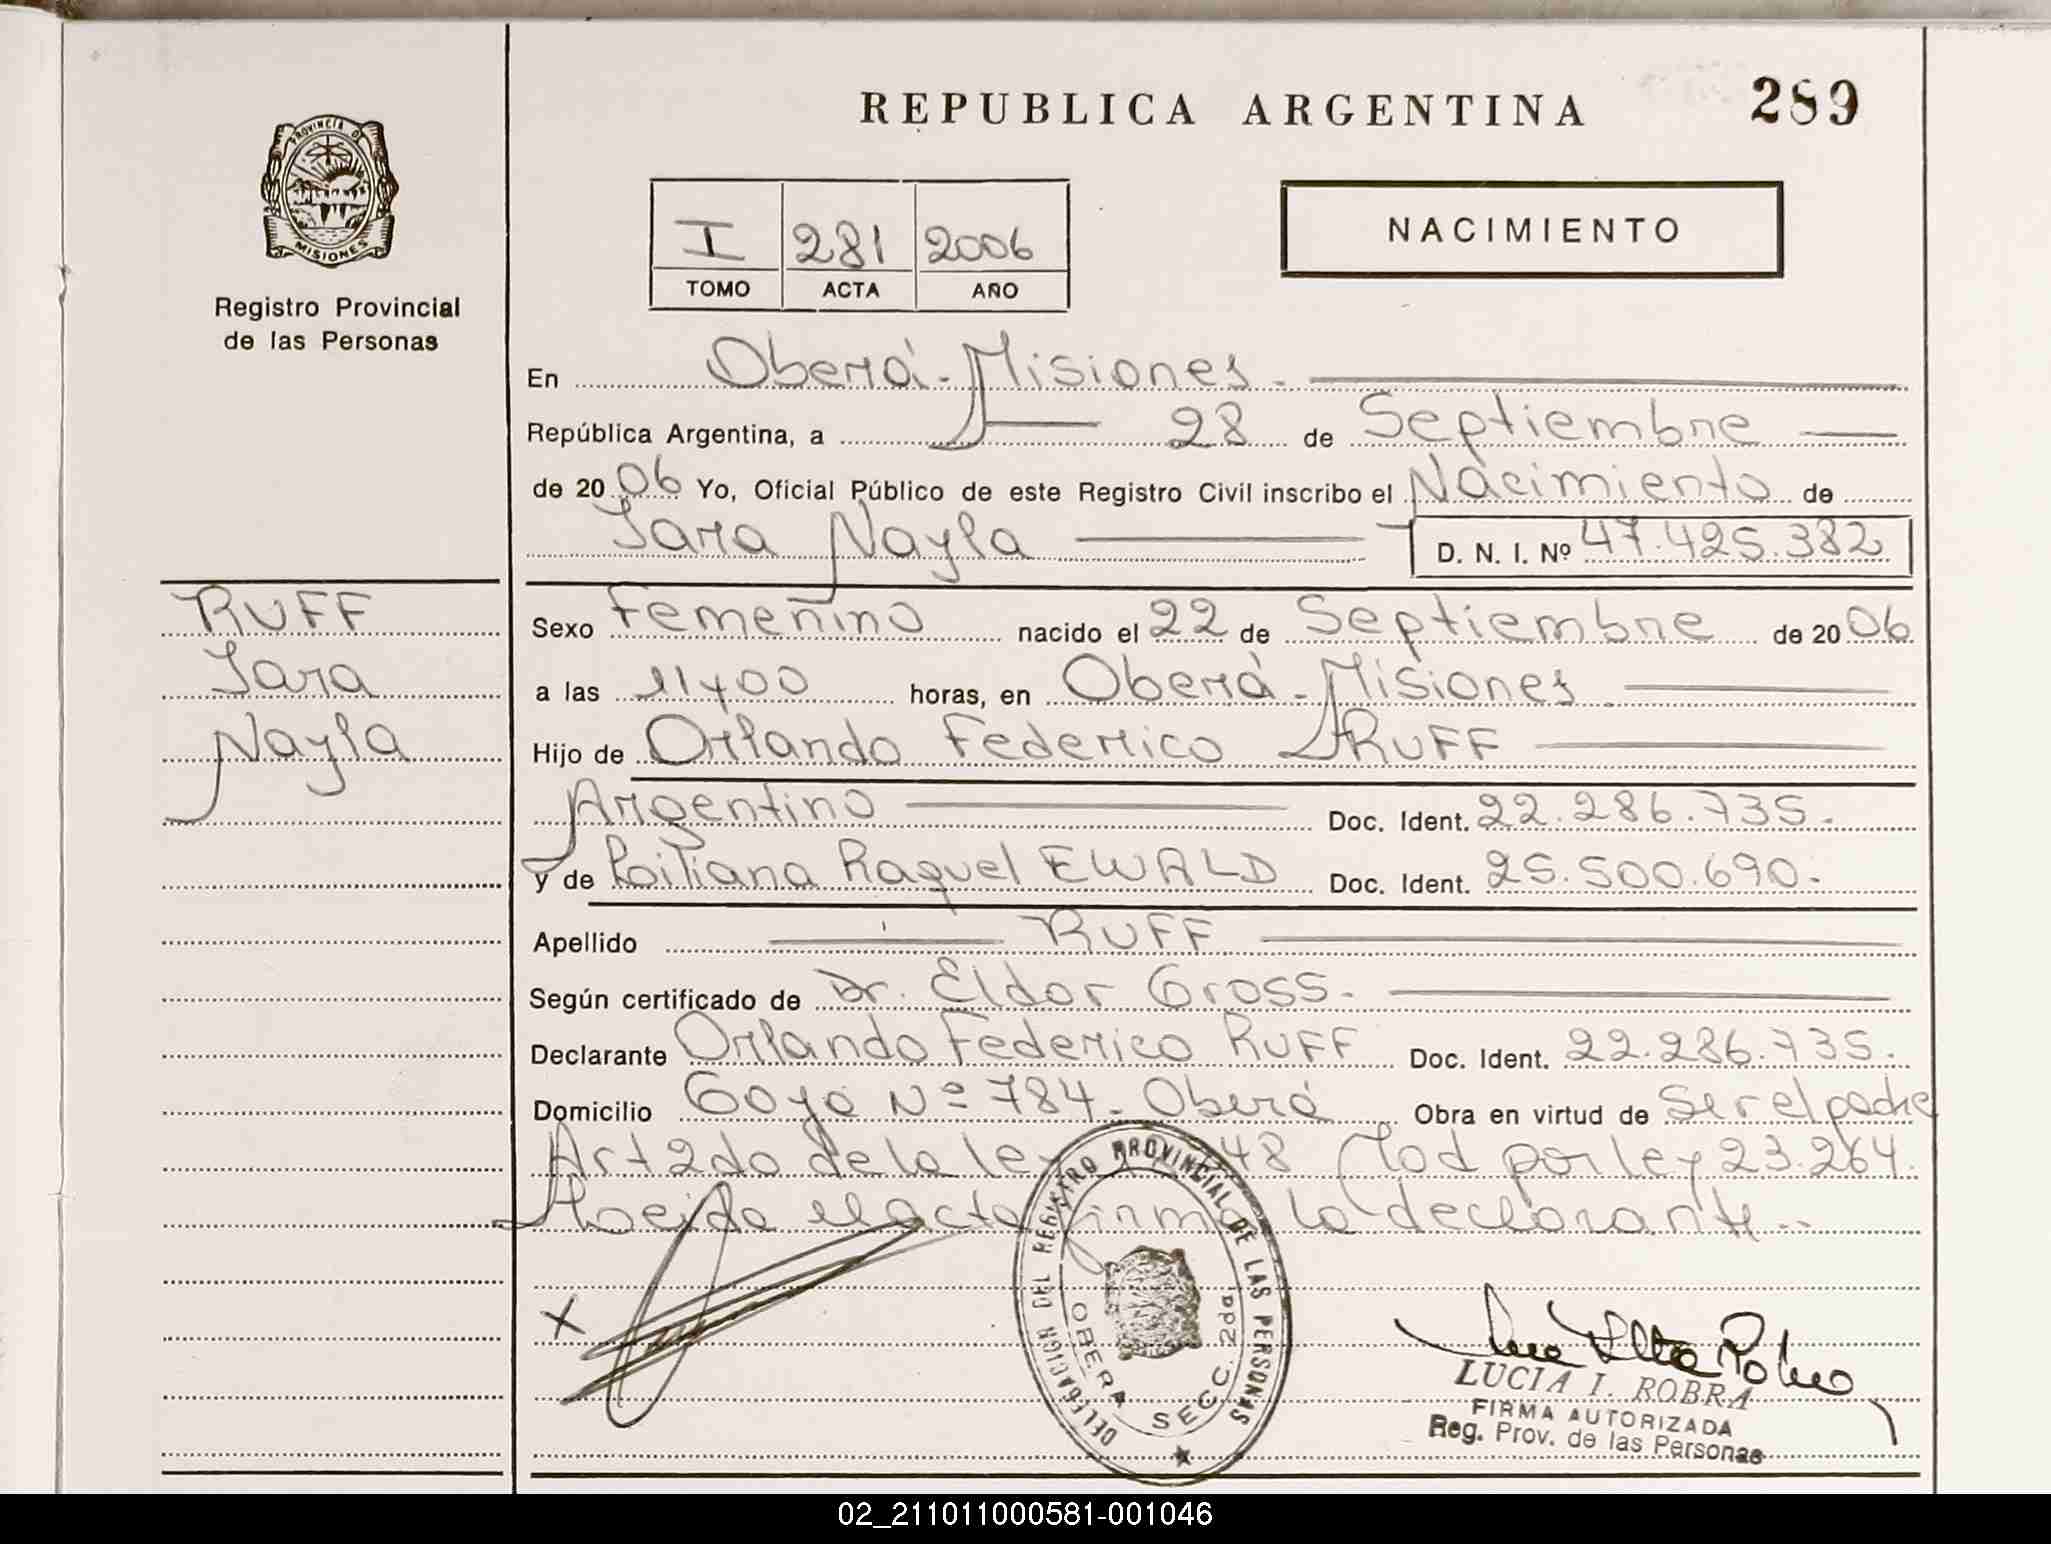 REPUBLICA ARGENTINA
289
PROVINCIA DE
MISIONES
Registro Provincial
de las Personas
I 281 2006
TOMO ACTA AÑO
NACIMIENTO
En Oberá - Misiones.
República Argentina, a 28 de Septiembre
de 2006 Yo, Oficial Público de este Registro Civil inscribo el Nacimiento de
Sara Nayla D. N. I. Nº 47.425.382
RUFF
Sara
Nayla
Sexo Femenino nacido el 22 de Septiembre de 2006
a las 11,00 horas, en Oberá - Misiones
Hijo de Orlando Federico RUFF
Argentino Doc. Ident. 22.286.735.
y de Raquel EWALD Doc. Ident. 25.500.690.
Apellido RUFF
Según certificado de Dr. Eldor Gross.
Declarante Orlando Federico RUFF Doc. Ident. 22.286.735.
Domicilio Goya Nº 784. Oberá Obra en virtud de ser el padre
Art 2do de la ley 48 Mod por ley 23.264.
Leida el acta firma la declarante..
X
DELEGACION DEL REGISTRO PROVINCIAL DE LAS PERSONAS
OBERA SECC. 2da
LUCIA I. ROBRA
FIRMA AUTORIZADA
Reg. Prov. de las Personas
02_211011000581-001046